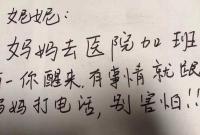 妮妮：
妈妈去医院加班
一你醒来，有事情就跟
妈打电话，别害怕!!